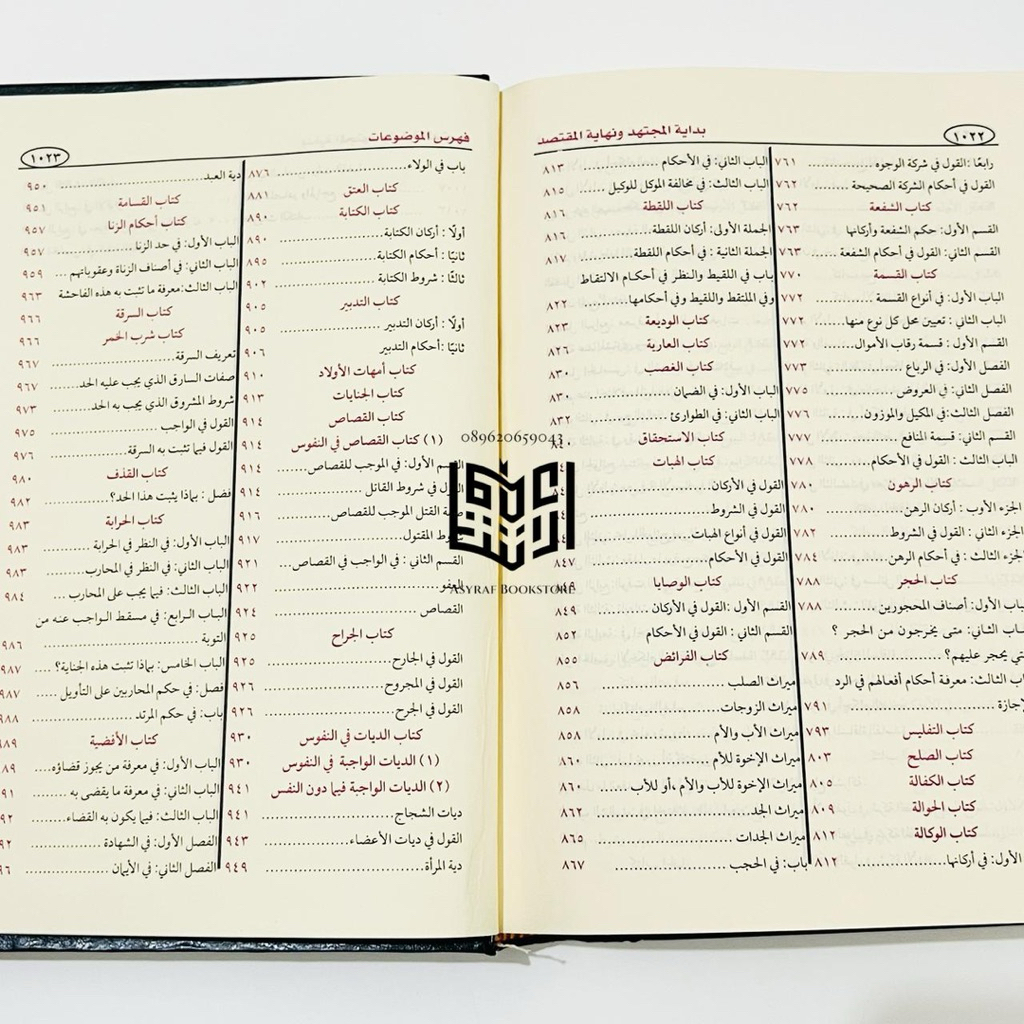 ١٠٢٢
بداية المجتهد ونهاية المقتصد
رابعًا : القول في شركة الوجوه ........ ٧٦١
القول في أحكام الشركة الصحيحة ........ ٧٦٢
كتاب الشفعة ٧٦٢
القسم الأول: حكم الشفعة وأركانها ٧٦٣
القسم الثاني: القول في أحكام الشفعة ...... ٧٦٣
كتاب القسمة ٧٧٠
الباب الأول: في أنواع القسمة ........ ٧٧٢
الباب الثاني : تعيين محل كل نوع منها....... ٧٧٢
القسم الأول : قسمة رقاب الأموال...... ٧٧٢
الفصل الأول: في الرباع ........ ٧٧٣
الفصل الثاني: في العروض ........ ٧٧٥
الفصل الثالث: في المكيل والموزون ........ ٧٧٦
القسم الثاني: قسمة المنافع ........ ٧٧٧
الباب الثالث : القول في الأحكام........ ٧٧٨
كتاب الرهون ٧٨٠
الجزء الأوب : أركان الرهن........ ٧٨٠
الجزء الثاني : القول في الشروط ........ ٧٨٢
الجزء الثالث : في أحكام الرهن ........ ٧٨٤
كتاب الحجر ٧٨٨
باب الأول: أصناف المحجورين ........ ٧٨٨
الثاني: متى يخرجون من الحجر ؟
يحجر عليهم؟ ........ ٧٨٩
الثالث: معرفة أحكام أفعالهم في الرد
........ ٧٩١
كتاب التفليس ٧٩٣
كتاب الصلح ٨٠٣
كتاب الكفالة ٨٠٥
كتاب الحوالة ٨٠٩
كتاب الوكالة ٨١٢
الأول: في أركانها........ ٨١٢
الباب الثاني: في الأحكام ........ ٨١٣
الباب الثالث: في مخالفة الموكل للوكيل ..... ٨١٥
كتاب اللقطة ٨١٦
الجملة الأولى: أركان اللقطة........ ٨١٦
الجملة الثانية : في أحكام اللقطة........ ٨١٧
باب في اللقيط والنظر في أحكام الالتقاط
وفي الملتقط واللقيط وفي أحكامها........ ٨٢٢
كتاب الوديعة ٨٢٣
كتاب العارية ٨٢٦
كتاب الغصب ٨٣٠
الباب الأول: في الضمان ........ ٨٣٠
الباب الثاني: في الطوارئ ........ ٨٣٢
كتاب الاستحقاق
كتاب الهبات
القول في الأركان ........
القول في الشروط ........
القول في أنواع الهبات ........
القول في الأحكام........ ٨٤٧
كتاب الوصايا ٨٤٩
القسم الأول: القول في الأركان ........ ٨٤٩
القسم الثاني : القول في الأحكام ٨٥٢
كتاب الفرائض ٨٥٥
ميراث الصلب ........ ٨٥٦
ميراث الزوجات ........ ٨٥٨
ميراث الأب والأم ........ ٨٥٨
ميراث الإخوة للأم ........ ٨٦٠
ميراث الإخوة للأب والأم ،أو للأب ........ ٨٦٠
ميراث الجد ........ ٨٦٢
ميراث الجدات ........ ٨٦٥
باب: في الحجب ........ ٨٦٧
فهرس الموضوعات
١٠٢٣
باب في الولاء ........ ٨٧٦
كتاب العتق ٨٨١
كتاب الكتابة ٨٩٠
أولًا : أركان الكتابة ........ ٨٩٠
ثانيًا : أحكام الكتابة ........ ٨٩٥
ثالثًا : شروط الكتابة ........ ٩٠٢
كتاب التدبير ٩٠٥
أولًا : أركان التدبير ........ ٩٠٥
ثانيًا : أحكام التدبير ٩٠٦
كتاب أمهات الأولاد ٩١٠
كتاب الجنايات ٩١٣
كتاب القصاص ٩١٤
(١) كتاب القصاص في النفوس ٩١٤
القسم الأول: في الموجب للقصاص ........ ٩١٤
القول في شروط القاتل ........ ٩١٤
صفة القتل الموجب للقصاص ........ ٩١٦
شروط المقتول ........ ٩١٧
القسم الثاني : في الواجب في القصاص ... ٩٢١
العفو ........ ٩٢٢
القصاص ........ ٩٢٤
كتاب الجراح ٩٢٥
القول في الجارح ........ ٩٢٥
القول في المجروح ........ ٩٢٦
القول في الجرح ........ ٩٢٦
كتاب الديات في النفوس ٩٣٠
(١) الديات الواجبة في النفوس ٩٣٠
(٢) الديات الواجبة فيما دون النفس ٩٤١
ديات الشجاج ........ ٩٤١
القول في ديات الأعضاء ........ ٩٤٣
دية المرأة ........ ٩٤٩
دية العبد ........ ٩٥٠
كتاب القسامة ٩٥١
كتاب أحكام الزنا ٩٥٧
الباب الأول: في حد الزنا ........ ٩٥٧
الباب الثاني: في أصناف الزناة وعقوباتهم ... ٩٥٩
الباب الثالث: معرفة ما تثبت به هذه الفاحشة ٩٦٣
كتاب السرقة ٩٦٦
كتاب شرب الخمر ٩٦٦
تعريف السرقة ........ ٩٦٧
صفات السارق الذي يجب عليه الحد ........ ٩٦٧
شروط المشروق الذي يجب به الحد ........ ٩٧٣
القول في الواجب ........ ٩٧٥
القول فيما تثبت به السرقة ........ ٩٧٦
كتاب القذف ٩٨٠
فصل : بماذا يثبت هذا الحد؟ ........ ٩٨٢
كتاب الحرابة ٩٨٣
الباب الأول: في النظر في الحرابة ........ ٩٨٣
الباب الثاني: في النظر في المحارب ........ ٩٨٣
الباب الثالث: فيما يجب على المحارب ..... ٩٨٤
الباب الرابع: في مسقط الواجب عنه من
التوبة ........ ٩٨٦
الباب الخامس: بماذا تثبت هذه الجناية؟ .... ٩٨٧
فصل: في حكم المحاربين على التأويل ..... ٩٨٧
باب: في حكم المرتد ........ ٩٨٨
كتاب الأقضية
الباب الأول: في معرفة من يجوز قضاؤه....
الباب الثاني: في معرفة ما يقضى به ........
الباب الثالث: فيما يكون به القضاء........
الفصل الأول: في الشهادة ........
الفصل الثاني: في الأيمان ........
089620659043
ASYRAF BOOKSTORE